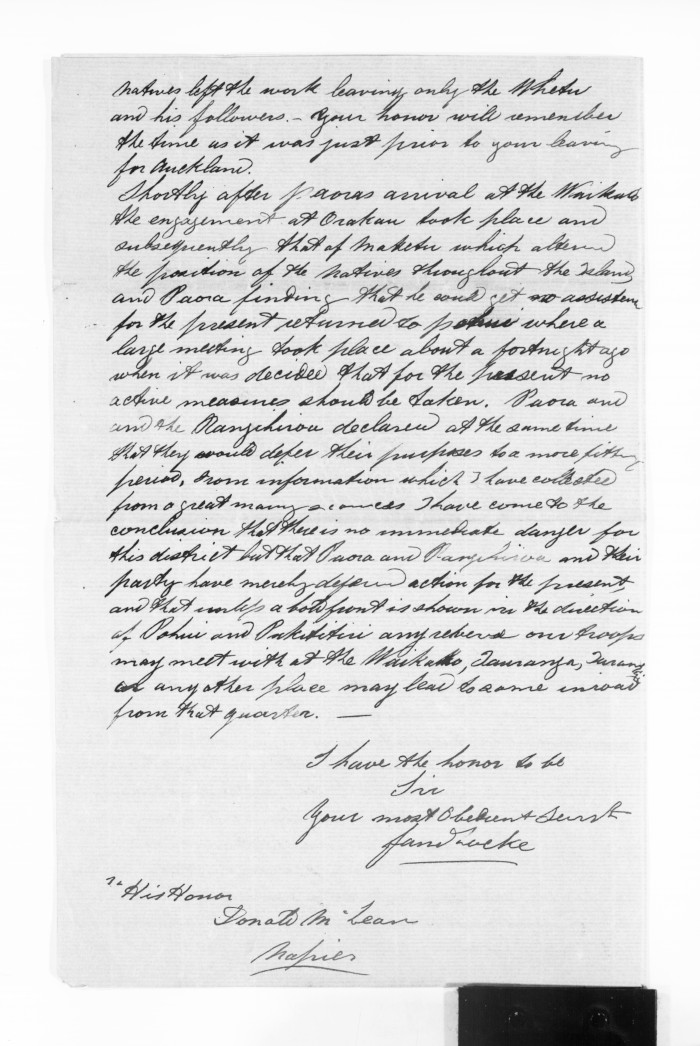 natives left the work leaving only the Whetu
and his followers. – Your honor will remember
the time as it was just prior to your leaving
for Auckland.
Shortly after paoras arrival at the Waikato
the engagement at Orakau took place and
subsequently that of Maketu which altered
the position of the Natives throughout the Island
and Paora finding that he could get no assistence
for the present returned to pohui where a
large meeting took place about a fortnight ago
when it was decided that for the present no
active measures should be taken. Paora and
and the Rangihiroa declared at the same time
that they would defer their purposes to a more fitting
period, from information which I have collected
from a great many sources I have come to the
conclusion that there is no immediate danger for
this district but that Paora and Rangihiroa and their
party have merely defered action for the present,
and that unless a bold front is shown in the direction
of Pohui and Pukititiri any reverse our troops
may meet with at the Waikato, Tauranga, Taranaki
or any other place may lead to some inroad
from that quarter. —
I have the honor to be
Sir
Your most Obedient Servt
Saml Locke
To His Honor
Donald McLean
Napier